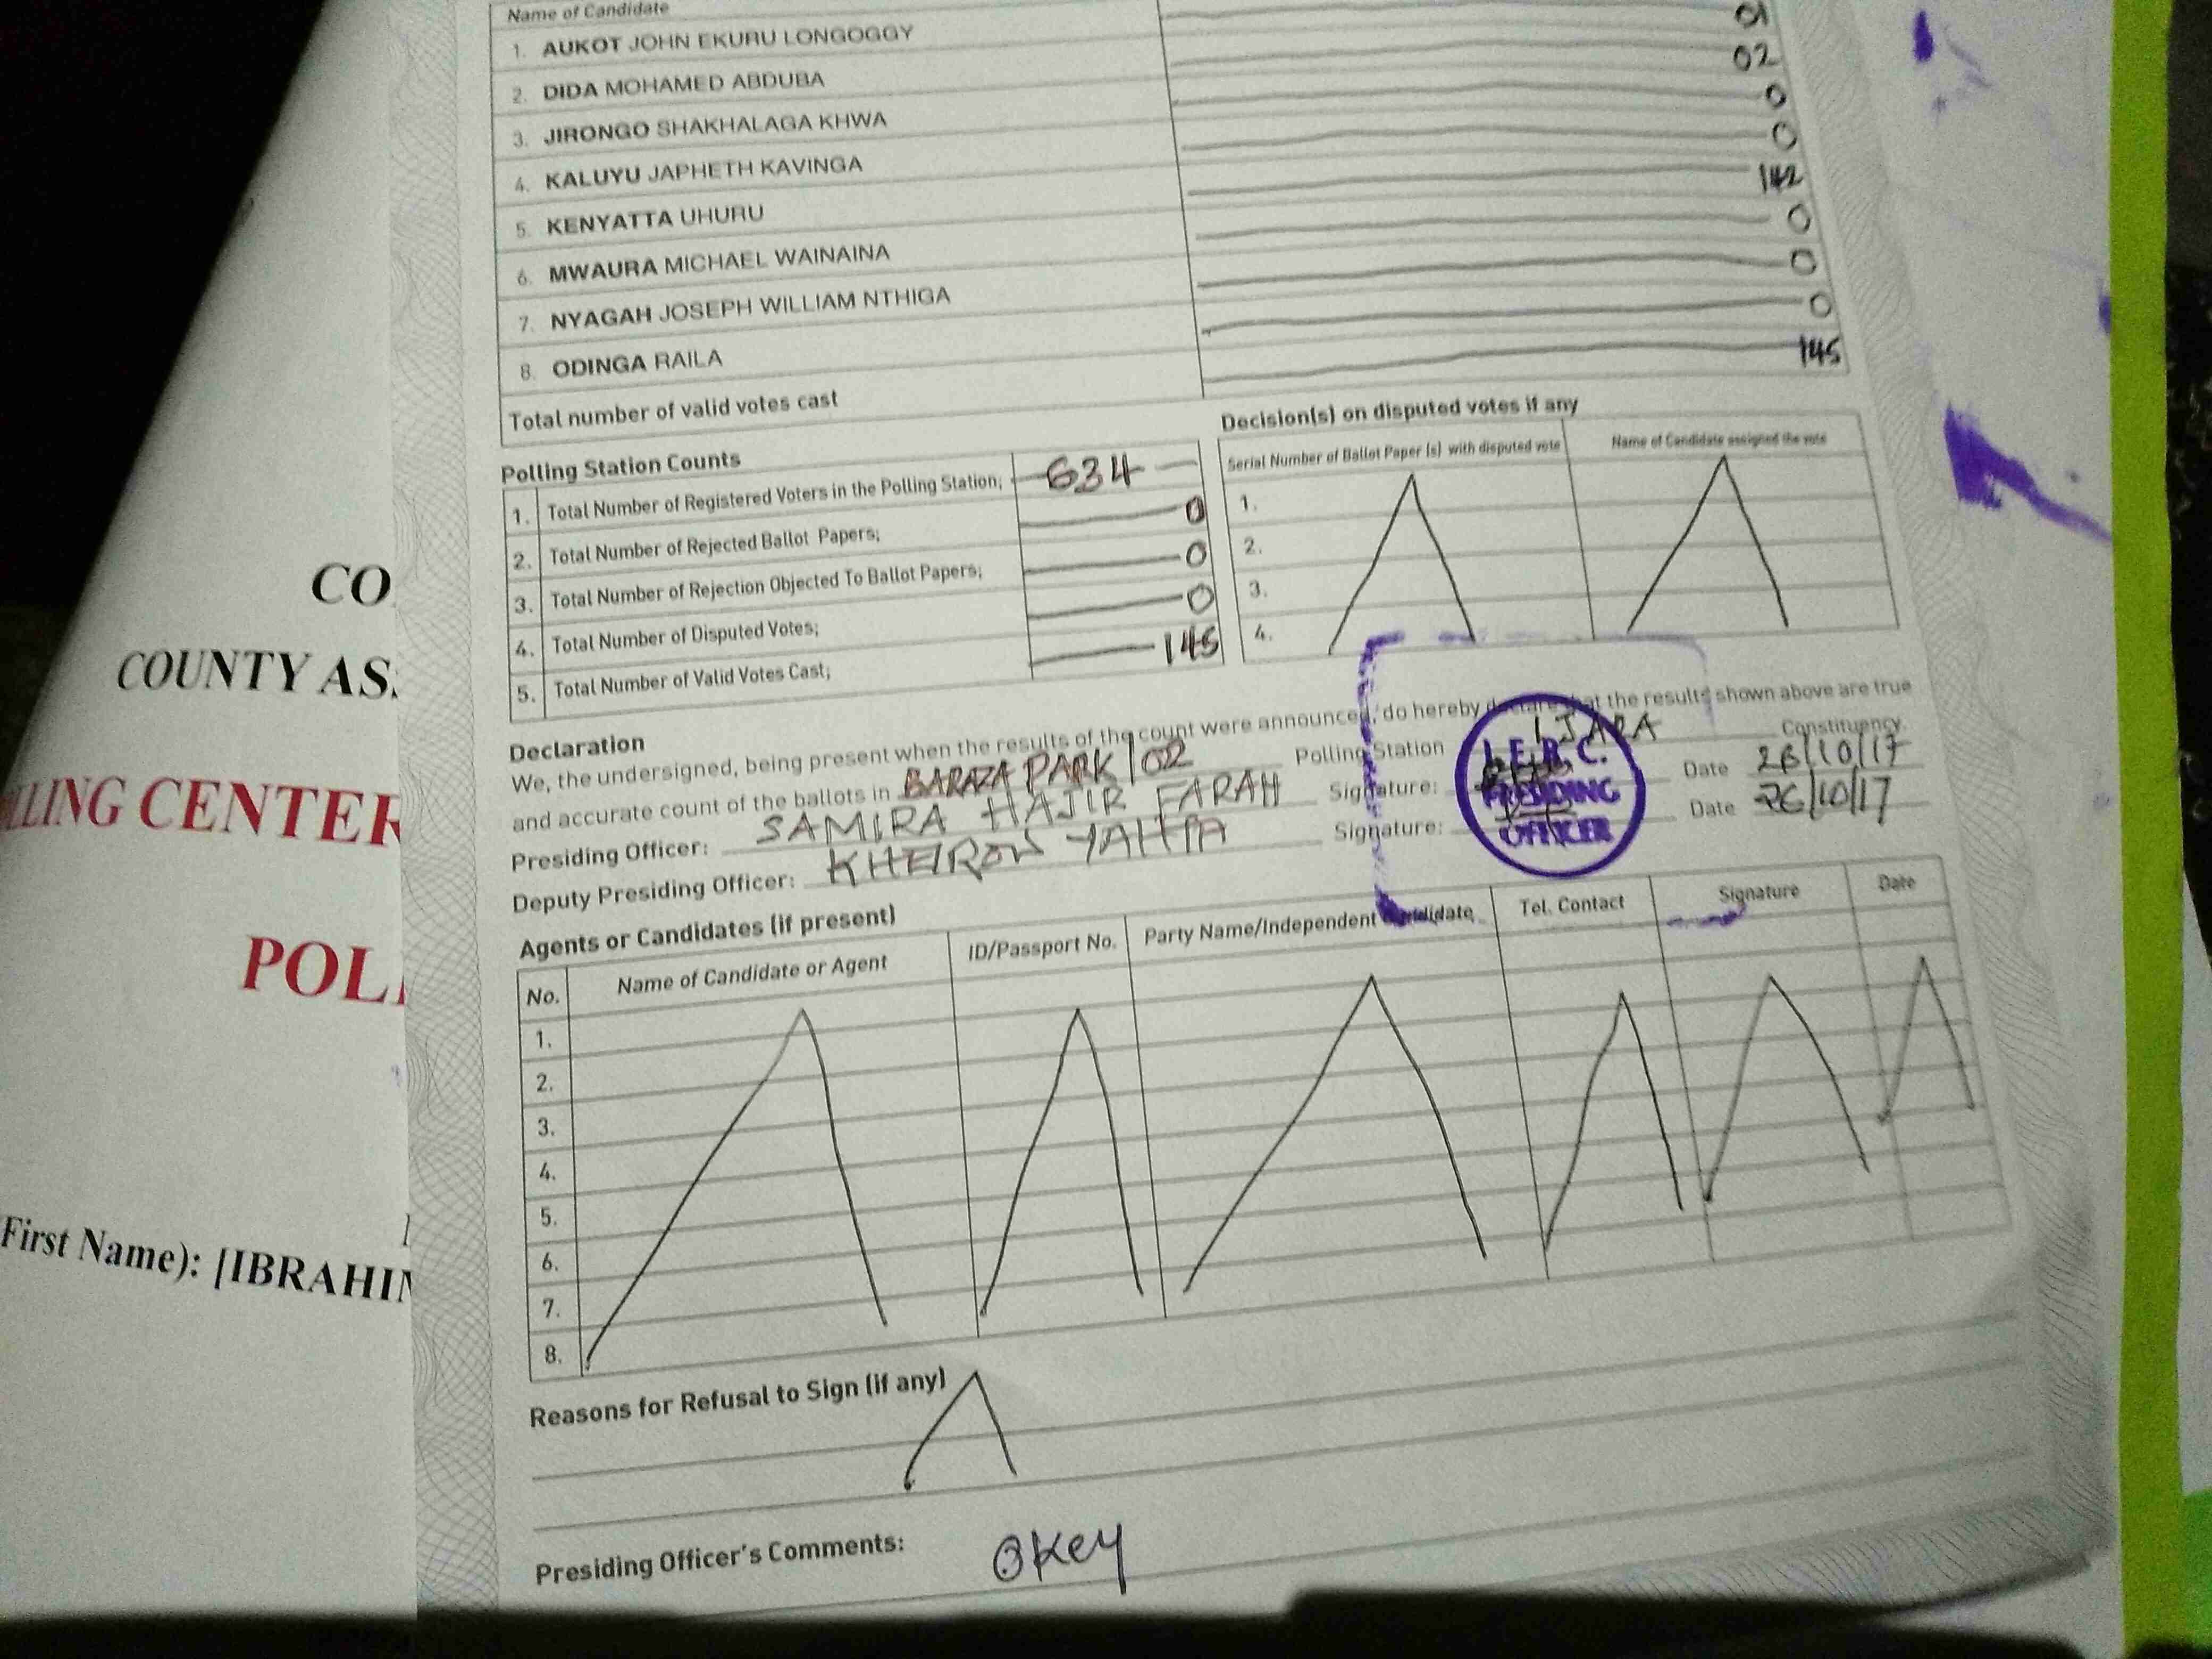 Name of Candidate
1. AUKOT JOHN EKURU LONGOGGY 01
2. DIDA MOHAMED ABDUBA 02
3. JIRONGO SHAKHALAGA KHWA 0
4. KALUYU JAPHETH KAVINGA 0
5. KENYATTA UHURU 142
6. MWAURA MICHAEL WAINAINA 0
7. NYAGAH JOSEPH WILLIAM NTHIGA 0
8. ODINGA RAILA 0
Total number of valid votes cast 145
Polling Station Counts
1. Total Number of Registered Voters in the Polling Station; 634
2. Total Number of Rejected Ballot Papers; 0
3. Total Number of Rejection Objected To Ballot Papers; 0
4. Total Number of Disputed Votes; 0
5. Total Number of Valid Votes Cast; 145
Decision(s) on disputed votes if any
Serial Number of Ballot Paper (s) with disputed vote Name of Candidate assigned the vote
1.
2.
3.
4.
Declaration
We, the undersigned, being present when the results of the count were announced, do hereby declare that the results shown above are true
and accurate count of the ballots in BARAZA PARK/02 Polling Station IJARA Constituency.
Presiding Officer: SAMIRA HAJIR FARAH Signature: Date 26/10/17
Deputy Presiding Officer: YAHYA Signature: Date 26/10/17
I.E.B.C.
PRESIDING
OFFICER
Agents or Candidates (if present)
No. Name of Candidate or Agent ID/Passport No. Party Name/Independent Candidate Tel. Contact Signature Date
1.
2.
3.
4.
5.
6.
7.
8.
Reasons for Refusal to Sign (if any)
Presiding Officer's Comments: OKey
CO
COUNTY AS
LLING CENTER
POL
First Name): [IBRAHIM